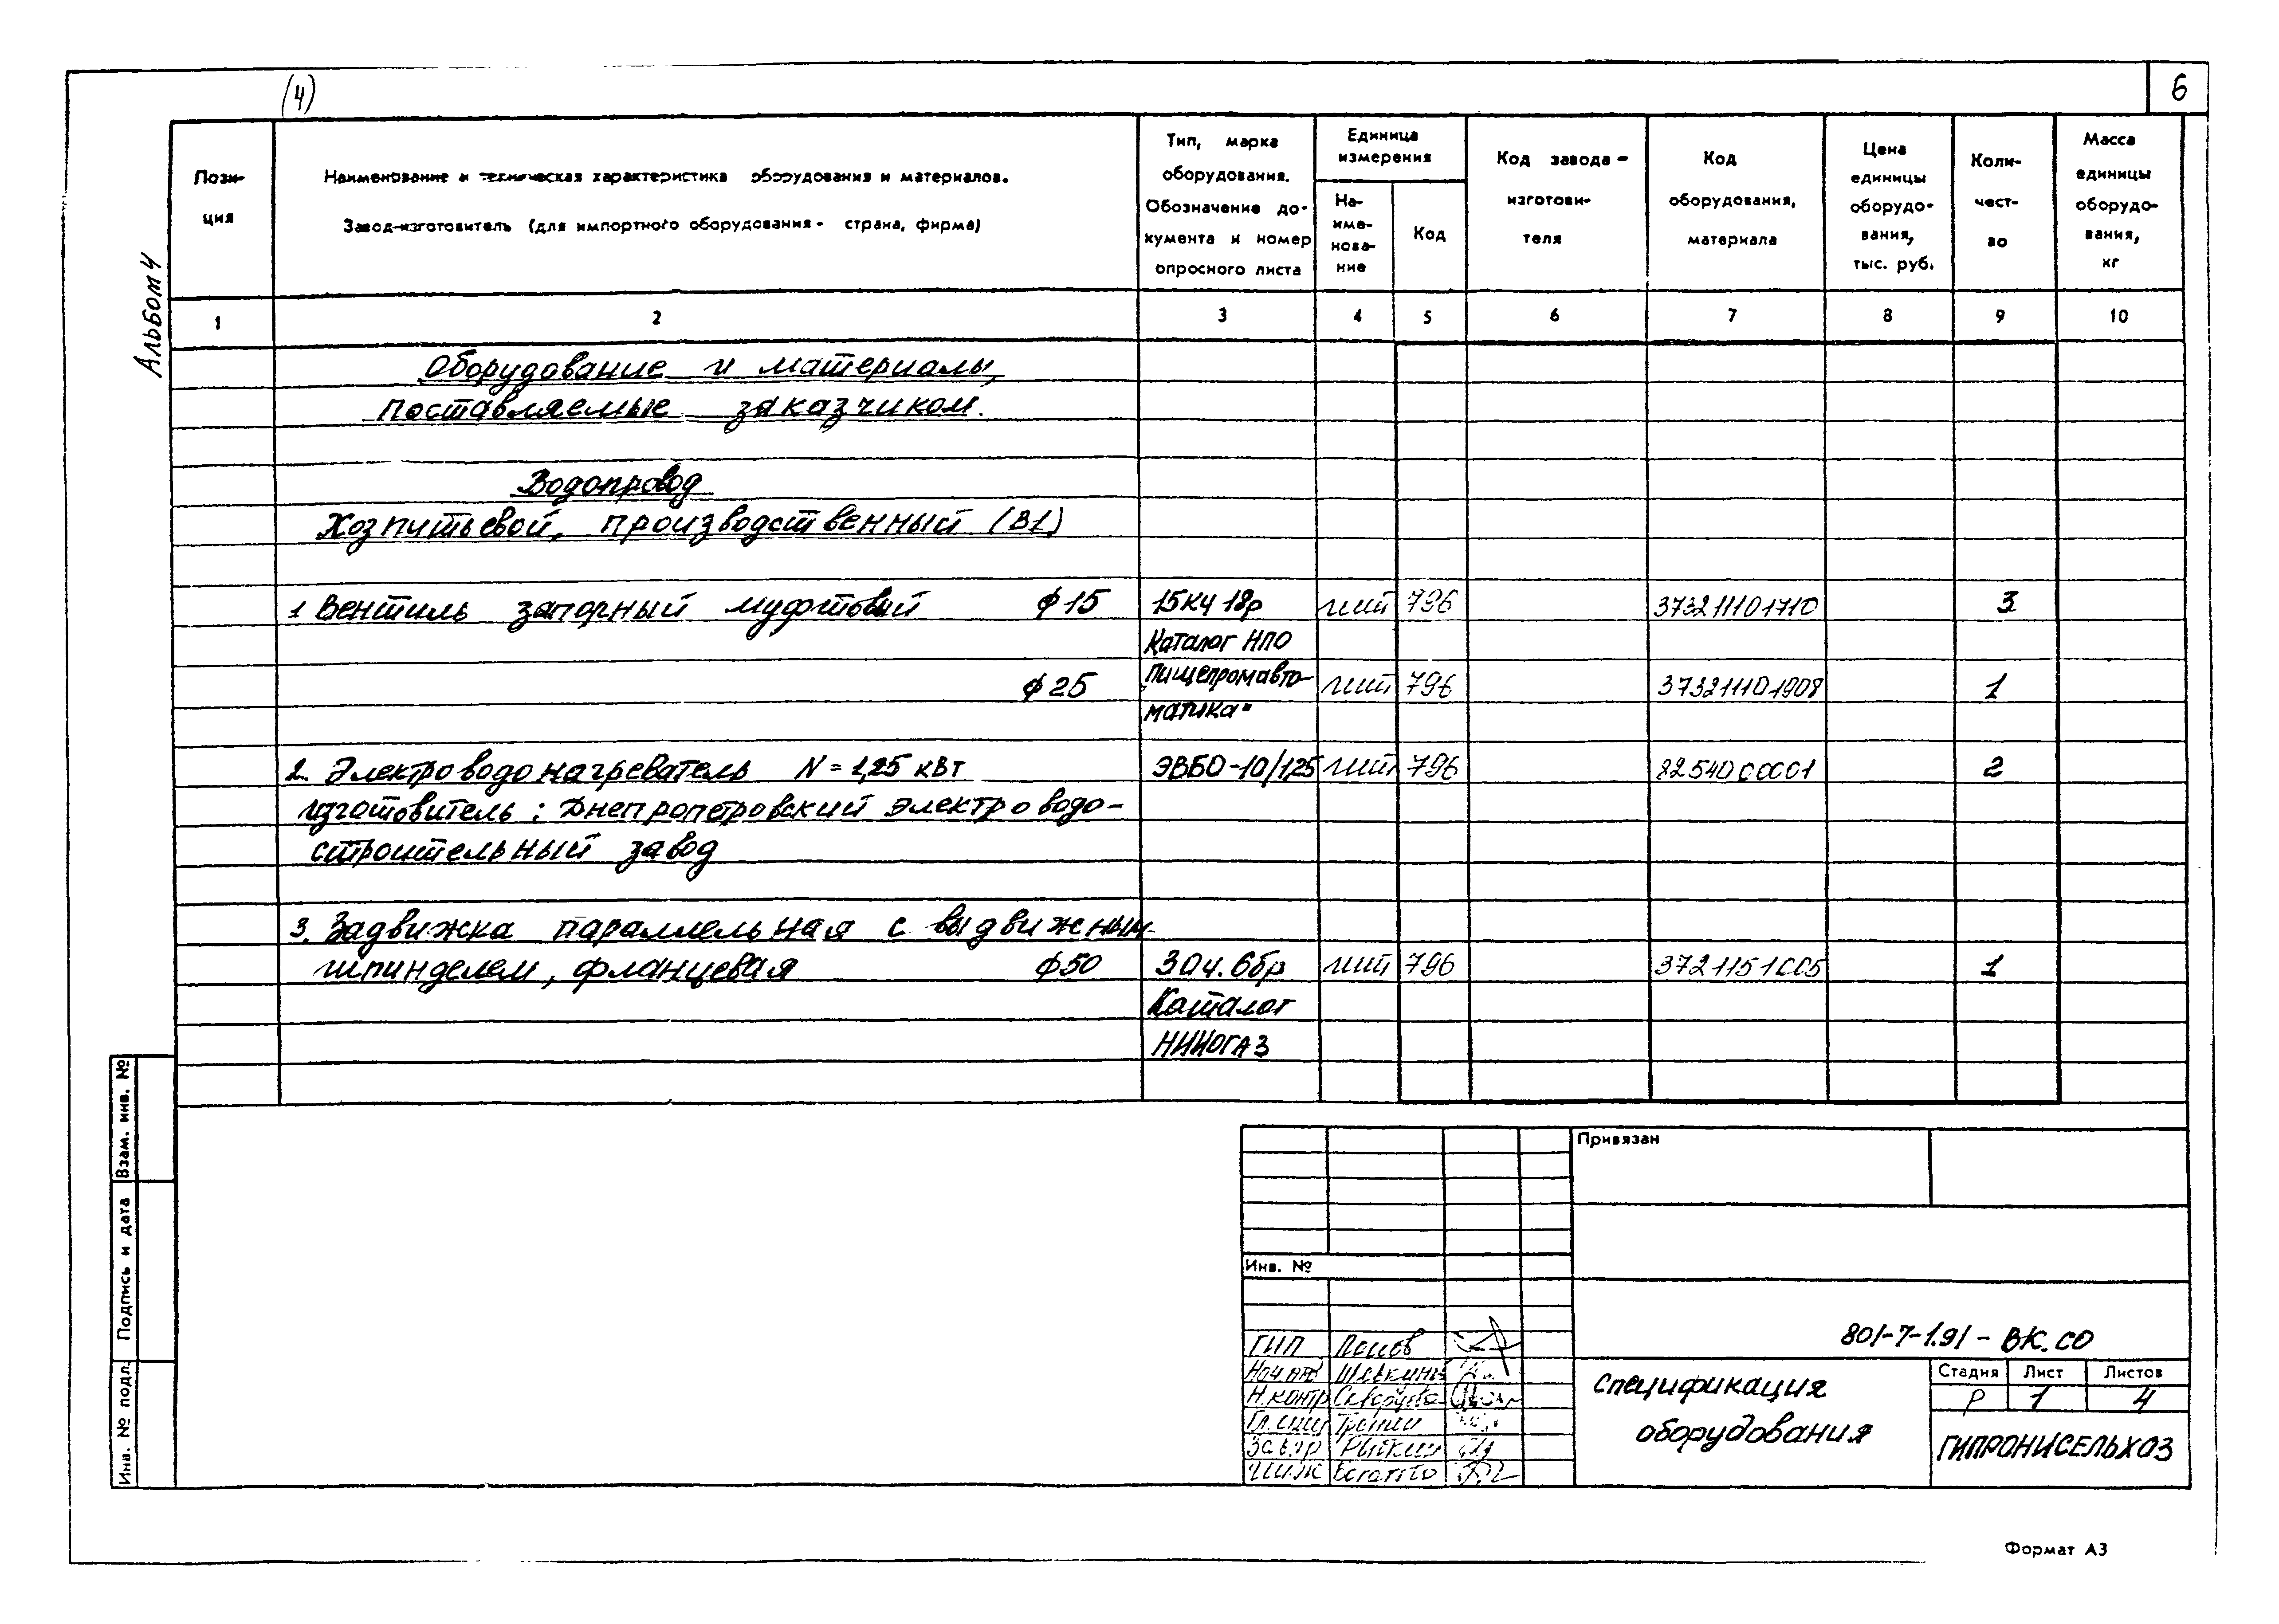 (4)
6
Альбом 4
Пози-
ция
Наименование и техническая характеристика оборудования и материалов.
Завод-изготовитель (для импортного оборудования - страна, фирма)
Тип, марка
оборудования.
Обозначение до-
кумента и номер
опросного листа
Единица
измерения
На-
име-
нова-
ние
Код
Код завода-
изготови-
теля
Код
оборудования,
материала
Цена
единицы
оборудо-
вания,
тыс. руб.
Коли-
чест-
во
Масса
единицы
оборудо-
вания,
кг
1 2 3 4 5 6 7 8 9 10
Оборудование и материалы,
поставляемые заказчиком.
Водопровод
Хозпитьевой, производственный (В1)
1 Вентиль запорный муфтовый ф15 15кч 18р шт 796 373211101710 3
Каталог НПО
ф25 „Пищепромавто- шт 796 373211101908 1
матика"
2. Электроводонагреватель N = 1,25 кВт ЭВБО-10/1,25 шт 796 2
изготовитель: Днепропетровский электроводо-
строительный завод
3. Задвижка параллельная с выдвижным
шпинделем, фланцевая ф50 30ч. 6бр шт 796 3721151005 1
Каталог
НИИОГАЗ
Взам. инв. №
Подпись и дата
Инв. № подл.
Привязан
Инв. №
801-7-1.91 - ВК.СО
ГИП Попов
Нач отд
Н.контр
Спецификация
оборудования
Стадия Лист Листов
Р 1 4
ГИПРОНИСЕЛЬХОЗ
Формат А3